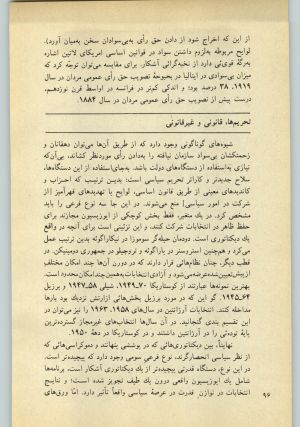 از این که اخراج شود از دادن حق رأی به بی‌سوادان سخن به‌میان آورد).
لوایح مربوطه به‌لزوم داشتن سواد در قوانین اساسی امریکای لاتین اشاره
به‌رگهٔ قوی‌ئی دارد از نخبه‌گرائی آشکار. برای مقایسه می‌توان توجه کرد که
میزان بی‌سوادی در ایتالیا در بحبوحهٔ تصویب حق رأی عمومی مردان در سال
۱۹۱۹، ۳۸ درصد بود؛ و اندکی کم‌تر در فرانسه در اواسط قرن نوزدهم،
درست پیش از تصویب حق رأی عمومی مردان در سال ۱۸۸۴.
تحریم‌ها، قانونی و غیرقانونی
شیوه‌های گوناگونی وجود دارد که از طریق آن‌ها می‌توان دهقانان و
زحمتکشان بی‌سواد سازمان نیافته را به‌دادن رأی موردنظر کشاند، بی‌آن‌که
نیازی به‌استفاده از دستگاه‌های دولت باشد. به‌جای‌استفاده از این دستگاه‌ها،
سلاح جدیدتر و کاراتر تحریم سیاسی است؛ بدین ترتیب که احزاب و
کاندیدهای معینی از طریق قانون اساسی، لوایح یا تهدیدهای قهرآمیز [از
شرکت در امور سیاسی] منع می‌شوند. در این جا سه نوع فرعی را باید
مشخص کرد. در یك متغیر، فقط بخش کوچکی از اپوزیسیون مجازند برای
حفظ ظاهر در انتخابات شرکت کنند، و این تزئینی است برای آنچه در واقع
یك دیکتاتوری است. دودمان حیله‌گر سوموزا در نیکاراگوئه بدین ترتیب عمل
می‌کرد و همچنین استروسنر در پاراگوئه و تروجیلو در جمهوری دومینیکن. در
قطب دیگر، چنان نظام‌هائی قرار دارند که در درون آن‌ها چند امکان مختلف
از پیش‌تعیین‌شده عرضه می‌شود و آزادی انتخابات به‌همین چند امکان محدود است.
بهترین نمونه‌ها عبارتند از کوستاریکا ۷۰ـ۱۹۴۹، شیلی ۵۸ـ۱۹۴۷ و برزیل
۶۴ـ۱۹۴۵. گو این که در مورد برزیل بخش‌هائی ازارتش نزدیك بود بارها
مداخله کنند. انتخابات آرژانتین در سال‌های ۱۹۵۸، ۱۹۶۳ را نیز می‌توان در
این تقسیم بندی گنجانید. در آن سال‌ها انتخاب‌های غیرمجاز گسترده‌ترین
پایهٔ توده‌ئی را در آرژانتین داشتند، و در کوستاریکا در دههٔ ۱۹۵۰.
نهایتاً، بین دیکتاتوری‌هائی که در پوششی پنهانند و دموکراسی‌هائی که
از نظر سیاسی انحصارگرند، نوع فرعی سومی وجود دارد که پیچیده‌تر است.
در این نوع، دستگاه قدرتی پیچیده‌تر از یك دیکتاتوری آشکار است، برنامه‌ها
شامل یك اپوزیسیون واقعی درون یك طیف تجویز شده است؛ و نتایج
انتخابات در توازن قدرت در عرصهٔ سیاسی واقعاً تأثیر دارد. اما ورق‌های
۹۶